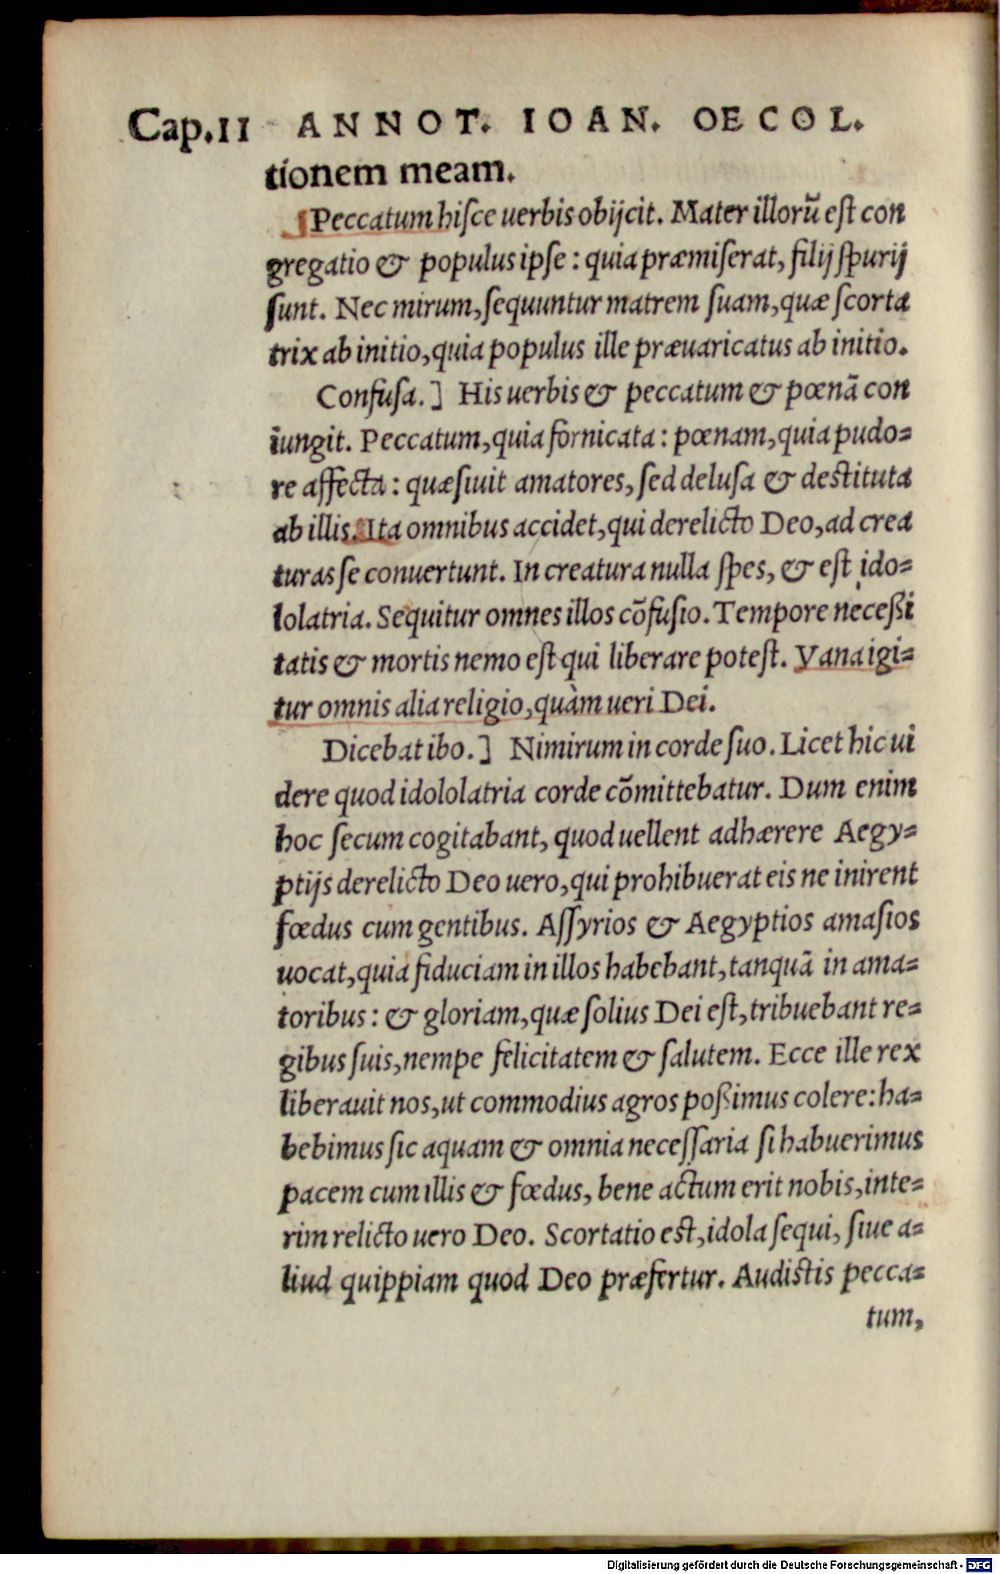 Cap.II ANNOT. IOAN. OECOL.
tionem meam.
Peccatum hisce uerbis obijcit. Mater illorũ est con
gregatio & populus ipse : quia præmiserat, filij spurij
sunt. Nec mirum, sequuntur matrem suam, quæ scorta
trix ab initio, quia populus ille præuaricatus ab initio.
Confusa.] His uerbis & peccatum & pœnã con
iungit. Peccatum, quia fornicata : pœnam, quia pudo=
re affecta : quæsiuit amatores, sed delusa & destituta
ab illis. Ita omnibus accidet, qui derelicto Deo, ad crea
turas se conuertunt. In creatura nulla spes, & est ido=
lolatria. Sequitur omnes illos cõfusio. Tempore neceßi
tatis & mortis nemo est qui liberare potest. Vana igi=
tur omnis alia religio, quàm ueri Dei.
Dicebat ibo.] Nimirum in corde suo. Licet hic ui
dere quod idololatria corde cõmittebatur. Dum enim
hoc secum cogitabant, quod uellent adhærere Aegy=
ptijs derelicto Deo uero, qui prohibuerat eis ne inirent
fœdus cum gentibus. Assyrios & Aegyptios amasios
uocat, quia fiduciam in illos habebant, tanquã in ama=
toribus : & gloriam, quæ solius Dei est, tribuebant re=
gibus suis, nempe felicitatem & salutem. Ecce ille rex
liberauit nos, ut commodius agros poßimus colere : ha=
bebimus sic aquam & omnia necessaria si habuerimus
pacem cum illis & fœdus, bene actum erit nobis, inte=
rim relicto uero Deo. Scortatio est, idola sequi, siue a=
liud quippiam quod Deo præfertur. Audistis pecca=
tum,
Digitalisierung gefördert durch die Deutsche Forschungsgemeinschaft - DFG